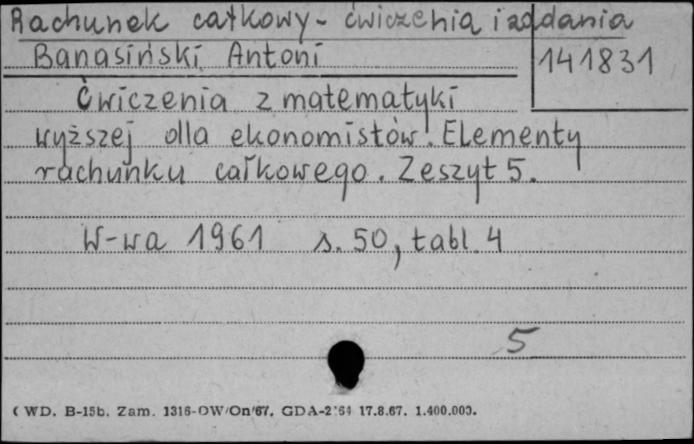 Rachunek całkowy - ćwiczenia i zadania
Banasiński Antoni
141831
Ćwiczenia z matematyki
wyższej dla ekonomistów. Elementy
rachunku całkowego. Zeszyt 5.
W-wa 1961 s. 50, tabl. 4
5
(WD. B-15b. Zam. 1316-OW/On/67. GDA-2/64 17.8.67. 1.400.000.